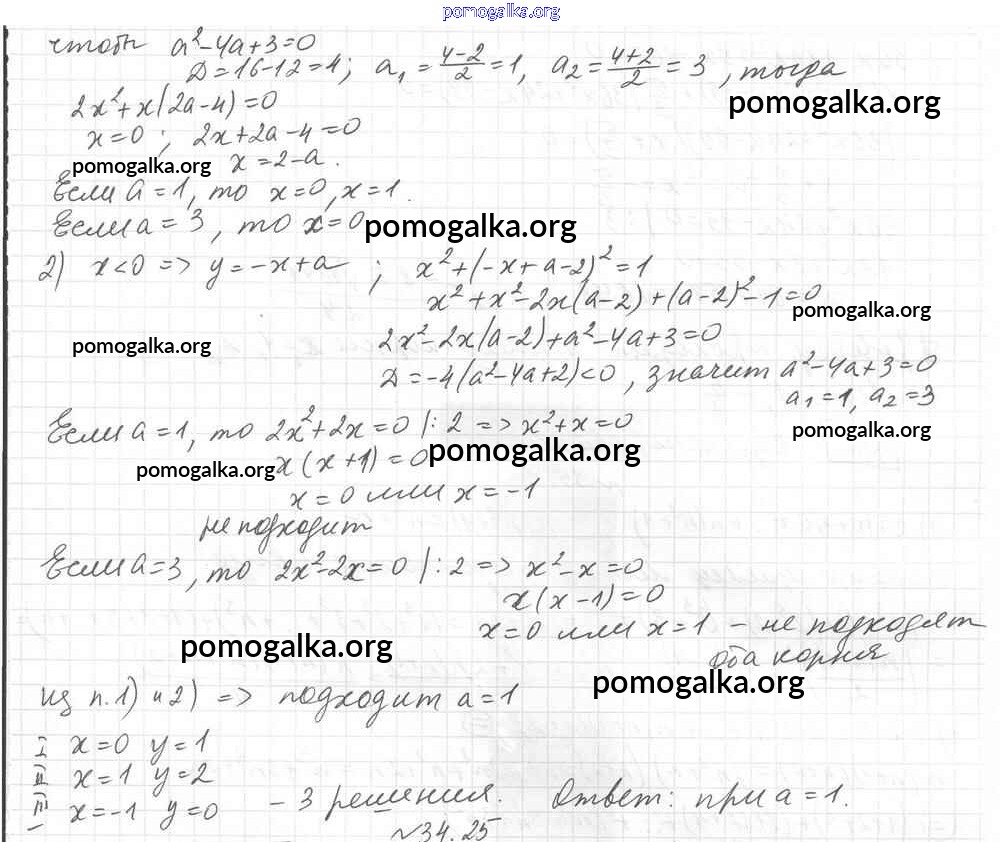 pomogalka.org
чтобы a²-4a+3=0
Д=16-12=4; a₁=(4-2)/2=1, a₂=(4+2)/2=3, тогда
pomogalka.org
2x²+x(2a-4)=0
x=0; 2x+2a-4=0
pomogalka.org x=2-a.
Если a=1, то x=0, x=1.
Если a=3, то x=0 pomogalka.org
2) x<0 => y=-x+a ; x²+(-x+a-2)²=1
x²+x²-2x(a-2)+(a-2)²-1=0
pomogalka.org
pomogalka.org 2x²-2x(a-2)+a²-4a+3=0
Д=-4(a²-4a+2)<0, значит a²-4a+3=0
a₁=1, a₂=3
Если a=1, то 2x²+2x=0 |:2 => x²+x=0
pomogalka.org
pomogalka.org x(x+1)=0 pomogalka.org
x=0 или x=-1
не подходит
Если a=3, то 2x²-2x=0 |:2 => x²-x=0
x(x-1)=0
x=0 или x=1 - не подходят
pomogalka.org оба корня
pomogalka.org
из п.1) и 2) => подходит a=1
I x=0 y=1
II x=1 y=2
III x=-1 y=0 - 3 решения. Ответ: при a=1.
№34.25